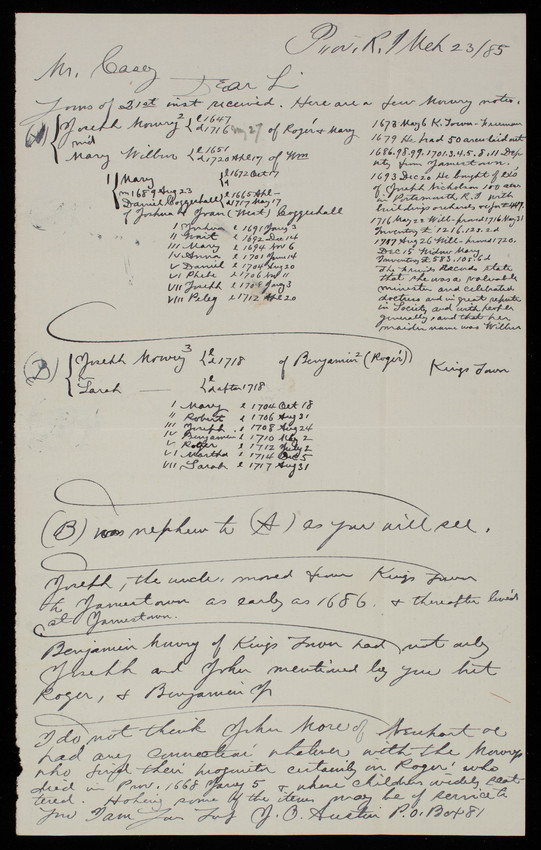 Prov. R. I Mch 23/85
Mr. Casey
Dear Sir
Yours of 21st inst received. Here are a few Mowry notes.
(A) { Joseph Mowry² { b 1647
d 1716 My 27 of Roger¹ & Mary
md
Mary Wilbur { b 1651
d 1720 Apl 17 of Wm
I { Mary { b 1672 Oct 17
d
m 1689 Aug 23
Daniel Coggeshall { b 1665 Apl —
d 1717 May 17
of Joshua & Joan (West) Coggeshall
I Joshua b 1691 Jany 3
II Wait b 1692 Dec 14
III Mary b 1694 Nov 6
IV Anna b 1701 June 14
V Daniel b 1704 Aug 20
VI Phebe b 1706 Nov 11
VII Joseph b 1708 Jany 3
VIII Peleg b 1712 Apl 20
1673 May 6 K. Town - Freeman
1679 He had 50 acres laid out
1686.98.99.1701.3.4.5.8.11 Dep
uty from Jamestown.
1693 Dec 20 He bought of Exs
of Joseph Nicholson 100 acres
in Portsmouth R. I. with
buildings orchards &c for £449.
1716 May 22 Will - proved 1716 May 31
Inventory £ 1216.12s.2d
1717 Aug 26 Will - proved 1720.
Dec 15 Widow Mary
Inventory £ 583.10s.6d
The Friends Records state
that she was a valuable
minister and celebrated
doctress and in great repute
in Society and with people
generally and that her
maiden name was Wilbur
(B) { Joseph Mowry³ { b
d 1718 of Benjamin² (Roger¹) Kings Town
&
Sarah — { b
d after 1718
I Mary b 1704 Oct 18
II Robert b 1706 Aug 21
III Joseph b 1708 Aug 24
IV Benjamin b 1710 May 2
V Roger b 1712 July 2
VI Martha b 1714 Dec 5
VII Sarah b 1717 Aug 31
(B) was nephew to (A) as you will see.
Joseph, the uncle, moved from Kings Town
to Jamestown as early as 1686. & thereafter lived
at Jamestown.
Benjamin Mowry of Kings Town had not only
Joseph and John mentioned by you but
Roger, & Benjamin Jr
I do not think John More of Newport &c
had any connection whatever with the Mowrys
who find their progenitor certainly in Roger¹ who
died in Prov. 1668 Jany 5 & whose children widely scat-
tered. Hoping some of the items may be of service to
you I am Yours Truly J. O. Austin P.O. Box 81